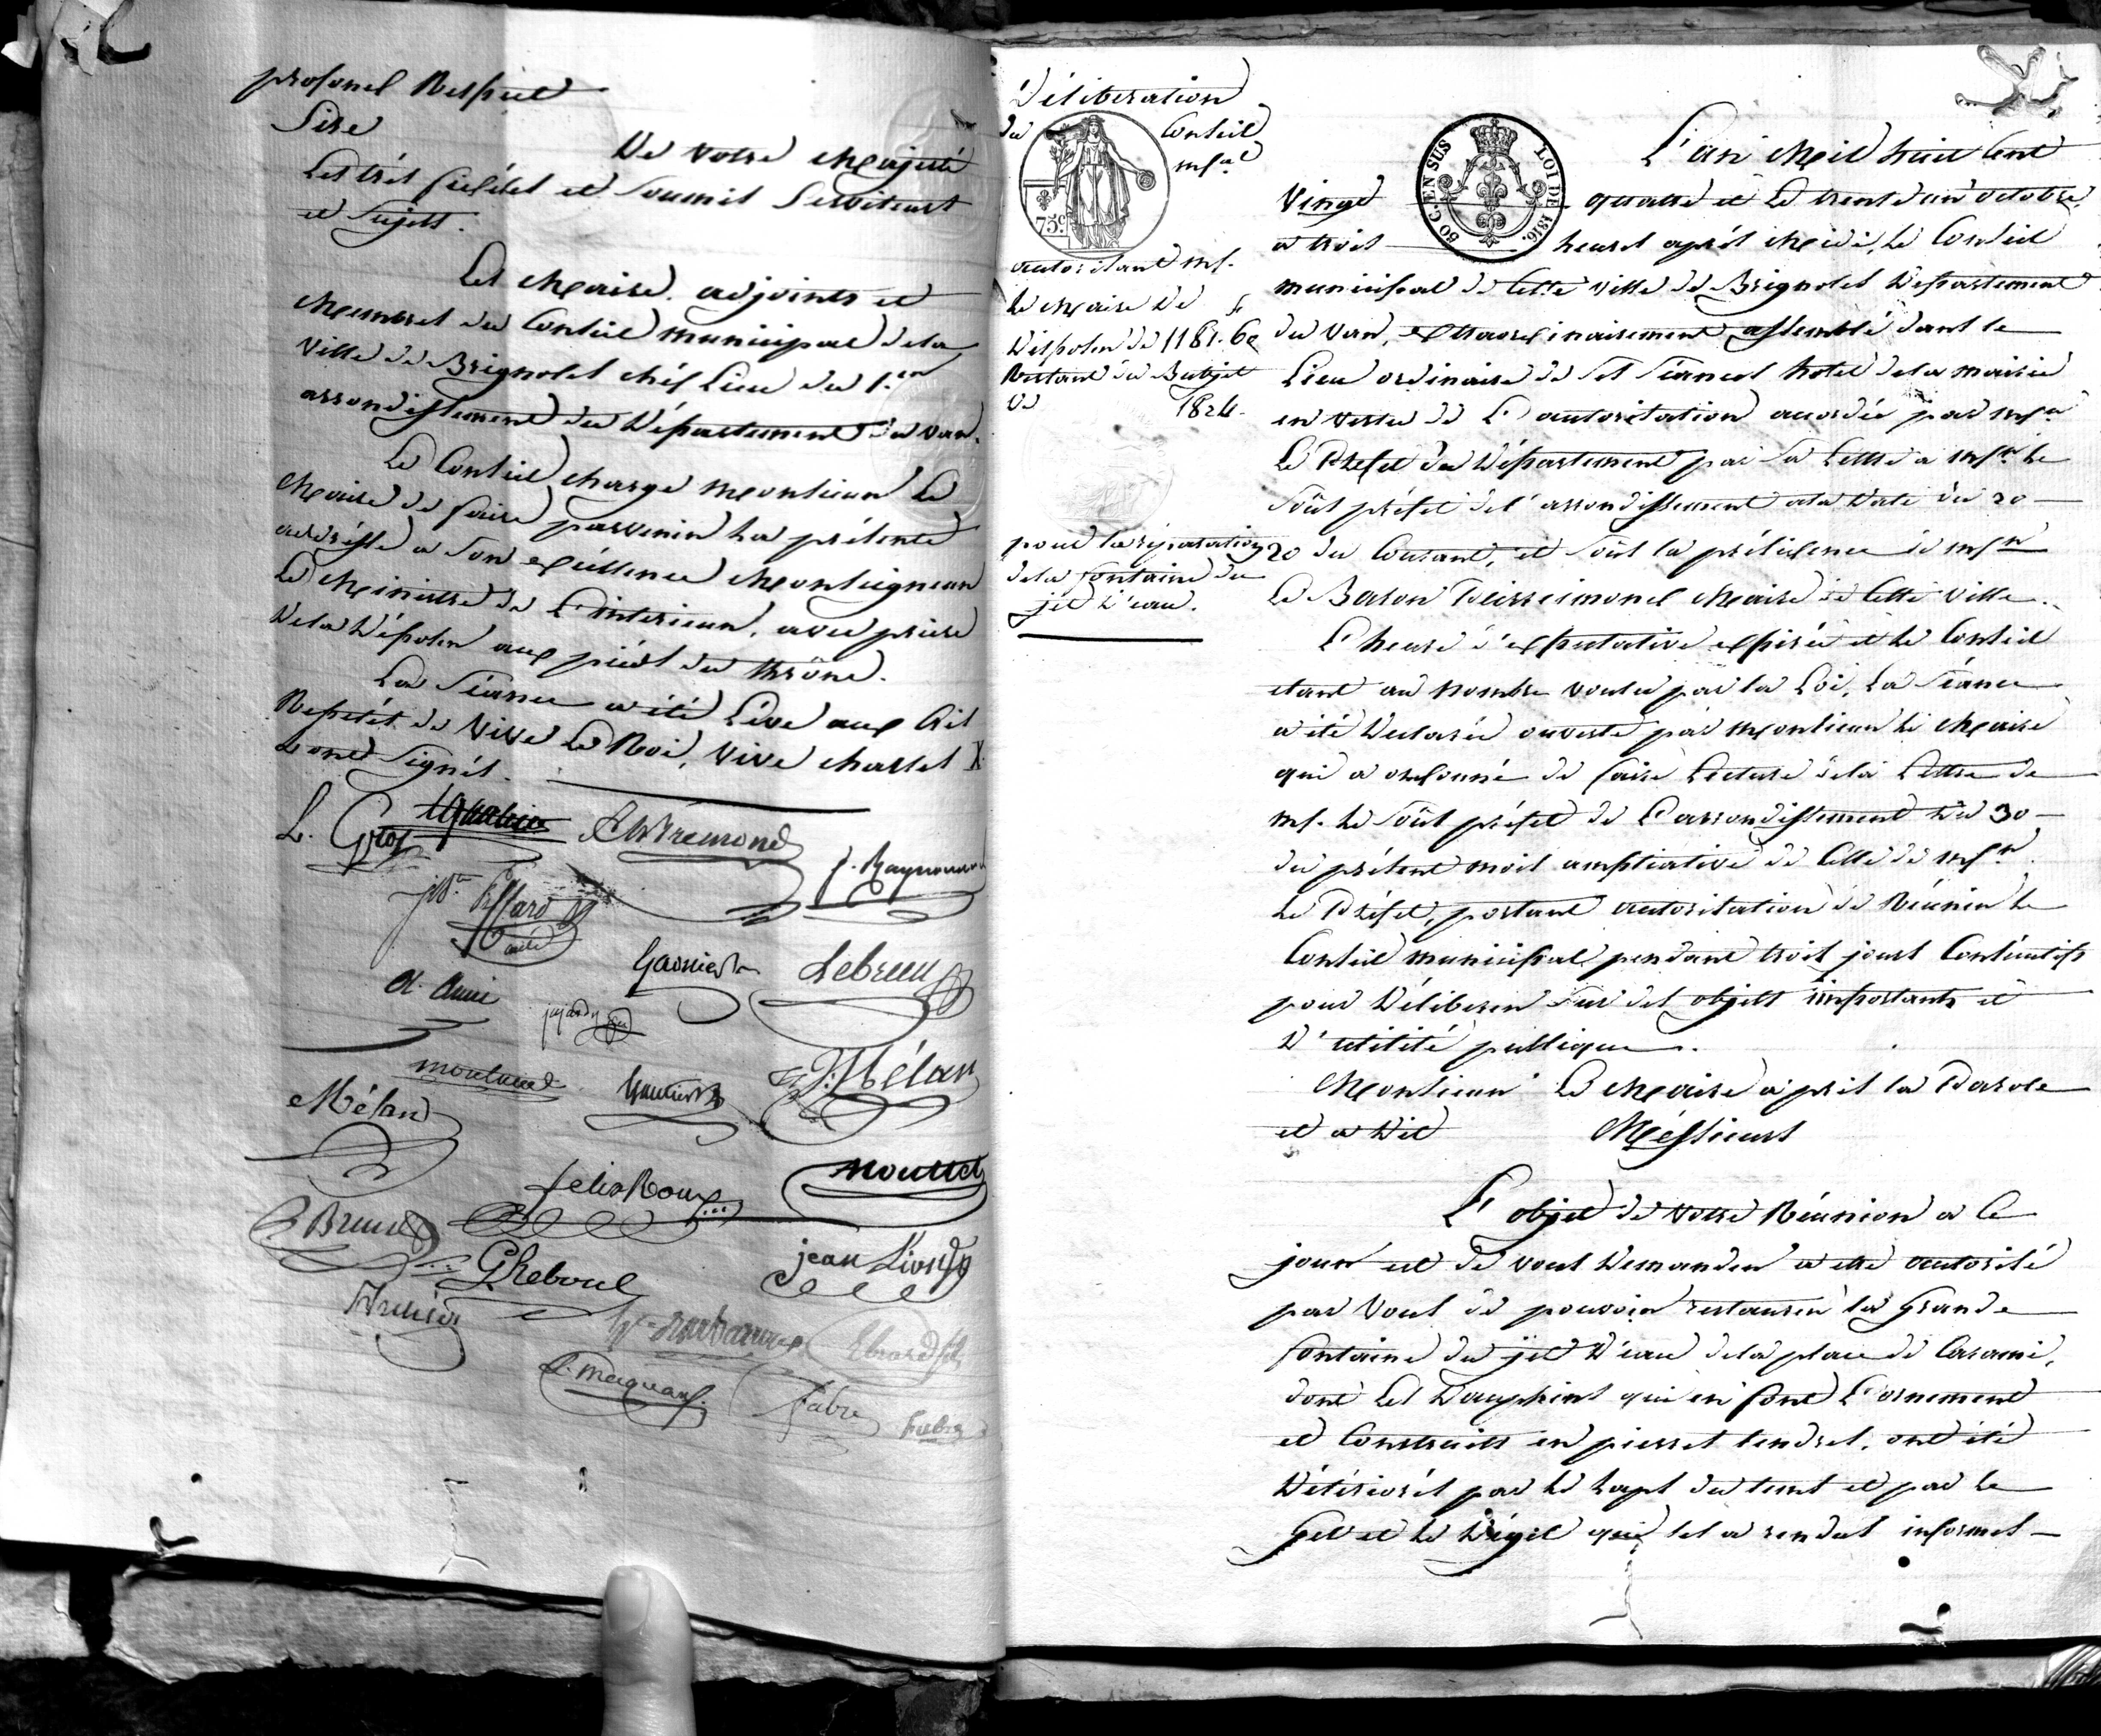 profond Respect
Sire
De votre Majesté
Les très fidéles et soumis serviteurs
et sujets.
Les Maire. adjoints et
Membres du Conseil municipal de la
Ville de Brignoles chéf Lieu du 1.er
arrondissement du Département du Var.
Le Conseil charge Monsieur Le
Maire de faire parvenir La présente
addrésse a Son excéllence Monseigneur
Le Ministre de L'interieur, avec priere
De la Déposer aux pieds du thrône.
La Séance a été Levée aux Cris
Repetés de Vive Le Roi, Vive charles X
et ont Signés.
L. Gros
J. Raynouard
Garnier
Lebrun
A. Amic
J. Mélan
Mélan
Gautier
felix Roux
Mouttet
Brun
G Reboul
jean Lion
Fabre
Délibération
du Conseil
m.pal
75c
autorisant Mr.
Le Maire De
Dépenser 1181. 60
Restant du Budjet
De 1824.
pour la réparation
de la fontaine du
jet d'eau.
80 C. EN SUS LOI DE 1816.
L'an Mil huit Cent
Vingt quatre et Le trente un octobre
a trois heures aprés Midi, Le Conseil
municipal de Cette ville de Brignoles Département
du Var, extraordinairement assemblé dans le
Lieu ordinaire de Ses Séances hotel de la mairie
en vertu de L'autorisation accordée par Mr.
Le Préfet du Département par Sa Lettre a Mr. Le
Sous préfet de l'arrondissement a la Date du 20
20 du Courant, et Sous la présidence de Mr.
Le Baron Maire de Cette Ville.
L'heure d'expectative expirée et le Conseil
etant au nombre voulu par la Loi, La Séance
a été Déclarée ouverte par Monsieur Le Maire
qui a ordonné de faire Lecture de la Lettre de
Mr. Le Sous préfet de L'arrondissement Du 30
du présent mois ampliative de Celle de Mr.
Le Préfet, portant autorisation de Réunir Le
Conseil municipal pendant trois jours Conséutifs
pour Déliberer Sur des objets importants et
D'utilité publique.
Monsieur Le Maire a pris la Parole
et a Dit Méssieurs
L'objet de votre Réunion a Ce
jour est de vous Demander a etre autorisé
par Vous de pouvoir restaurer la Grande
fontaine du jet D'eau de la place de Carami,
dont Les Dauphins qui en font L'ornement
et Construits en pierres tendres, ont été
Détériorés par le Laps du tems et par le
Gel et le Dégel qui les a rendus informes